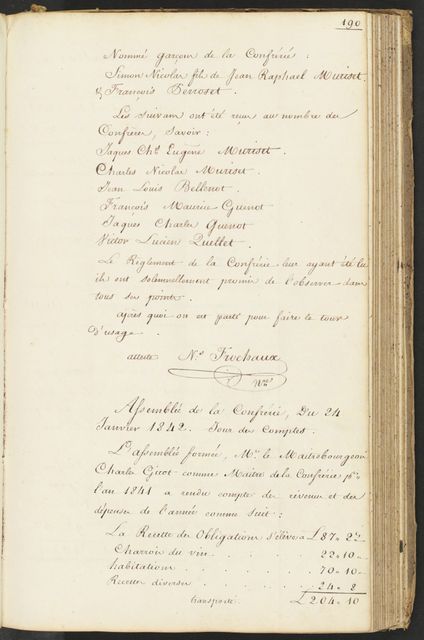 190
Nommé garçons de la Confrérie :
Simon Nicolas fils de Jean Raphael Muriset
& François Perroset .
Les suivans ont été reçus au nombre des
Confrères, savoir :
Jaques Chs Eugène Muriset .
Charles Nicolas Muriset .
Jean Louis Bellenot .
François Maurice Guenot
Jaques Charles Guenot
Victor Lucien Quellet .
Le Réglement de la Confrérie leur ayant été lu
ils ont solemnellement promis de l'observer dans
tous ses points .
après quoi on est parti pour faire le tour
d'usage .
atteste Ns Frochaux
Nre
Assemblée de la Confrérie, Du 24
Janvier 1842 . Jour des Comptes .
L'assemblée formée, Mr le Maitrebourgeois
Charles Gicot comme Maitre de la Confrérie pr
l'an 1841 a rendu compte des revenus et des
dépenses de l'année comme suit :
La Recette des Obligations s'élève à L 87 " 2 "
Charrois du vin . . . . 22 " 10 "
habitations . . . . . 70 " 10 "
Recettes diverses . . . . 24 " 8
transporté L 204 " 10